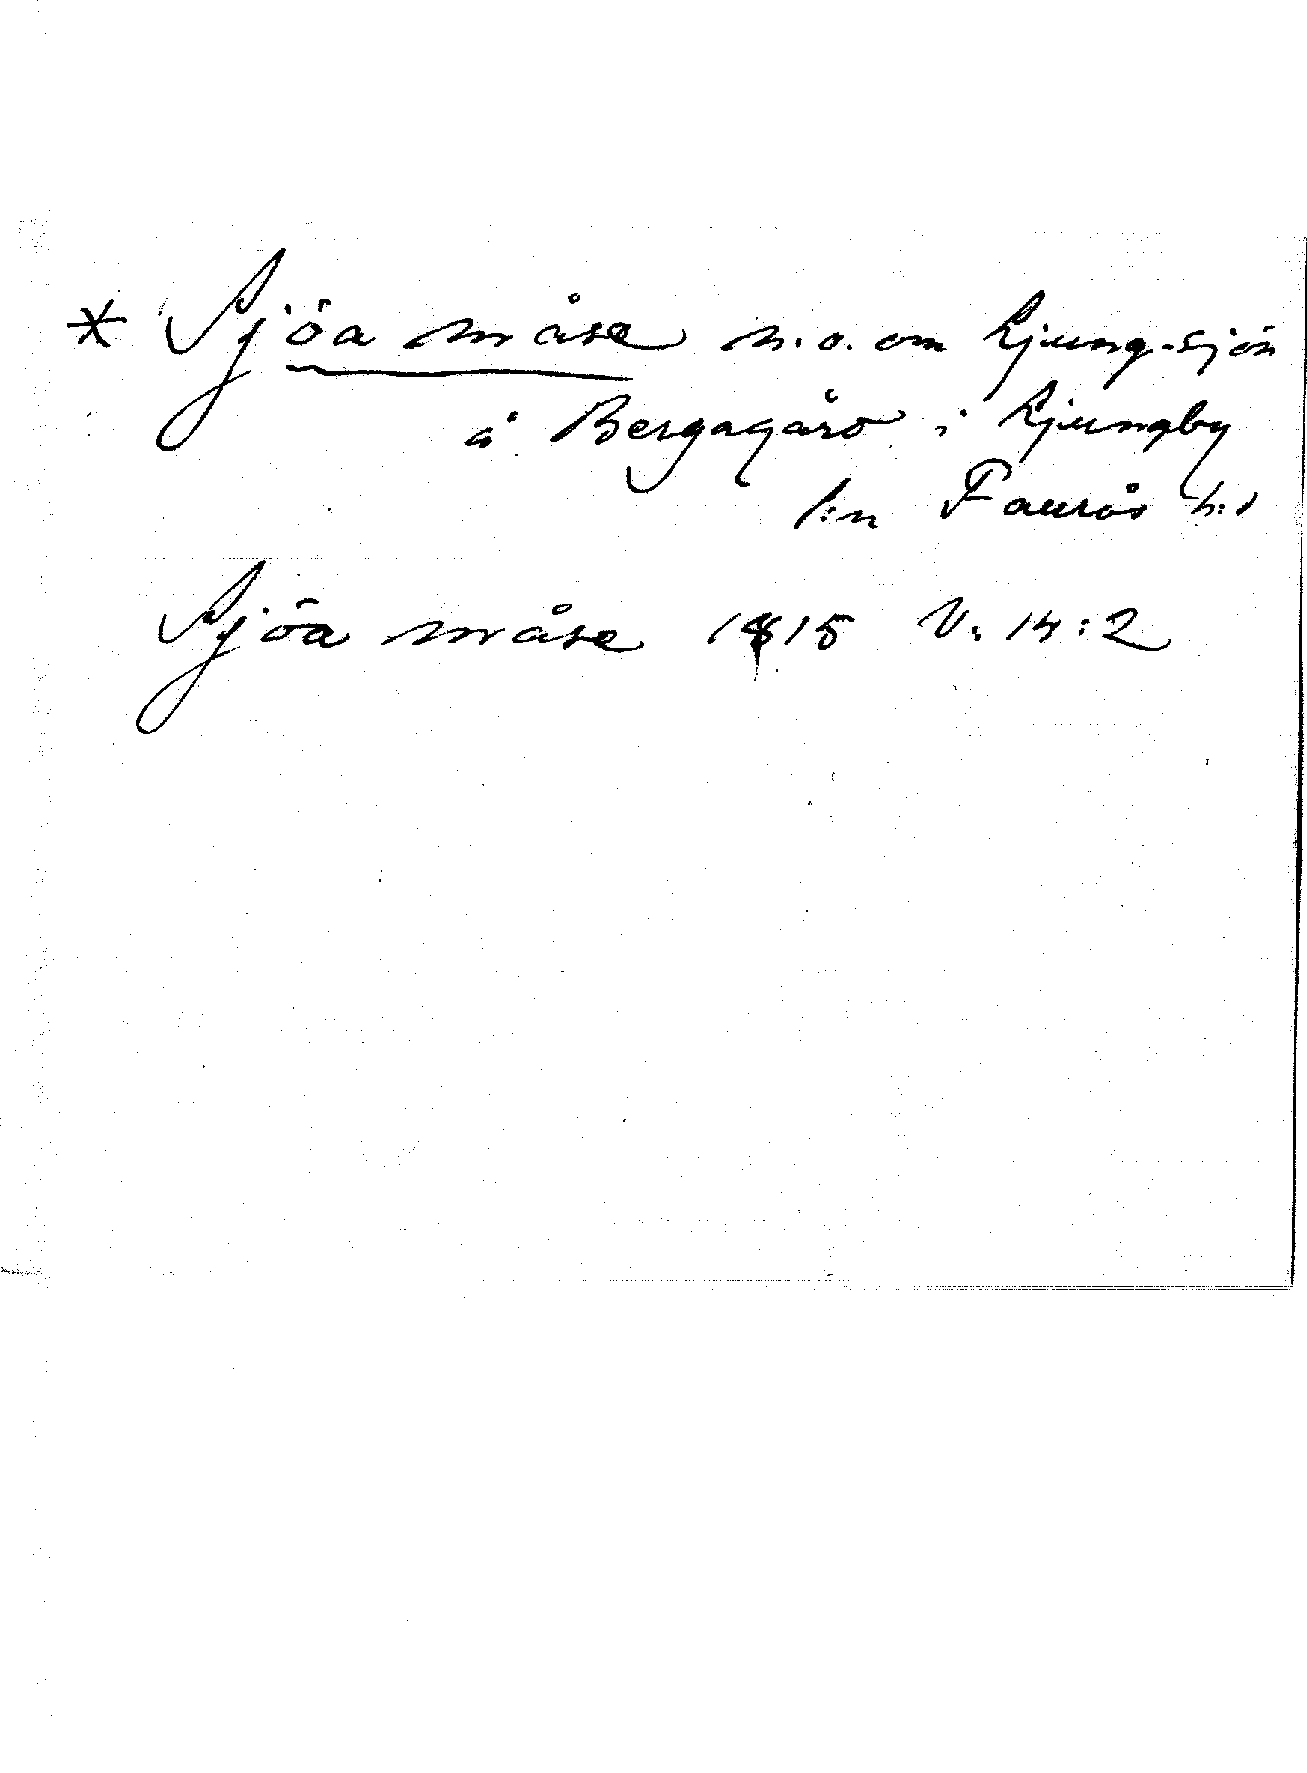 * Sjöa måse n.o. om Ljung-sjön
å Bergagård i Ljungby
s:n Faurås h:d
Sjöa måse 1815 V. 14:2